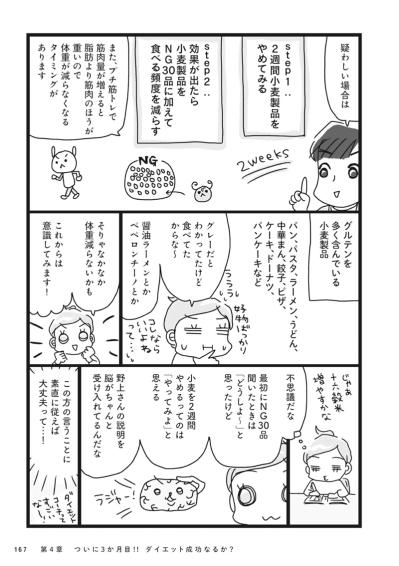 疑わしい場合は
step1：
2週間小麦製品を
やめてみる
step2：
効果が出たら
小麦製品を
NG30品に加えて
食べる頻度を減らす
2weeks
NG
また、プチ筋トレで
筋肉量が増えると
脂肪より筋肉のほうが
重いので
体重が減らなくなる
タイミングが
あります
グルテンを
多く含んでいる
小麦製品
パン、パスタ、ラーメン、うどん、
中華まん、餃子、ピザ、
ケーキ、ドーナツ、
パンケーキなど
グレーだと
わかってたけど
食べてた
からな～
醤油ラーメンとか
ペペロンチーノとか
うううっ
好物ばっかり
コレなら
いいよね
って…
そりゃなかなか
体重減らないかも
これからは
意識してみます！
じゃあ
十六穀米
増やすかな
不思議だな
最初にNG30品
聞いたときは
「どうしよ～」と
思ったけど
小麦を2週間
やめるってのは
「やってみよ」と
思える
野上さんの説明を
脳がちゃんと
受け入れてるんだな
この方の言うことに
素直に従えば
大丈夫って…！
ダイエット
コーチって
すごい！
167 第4章 ついに3か月目!! ダイエット成功なるか？